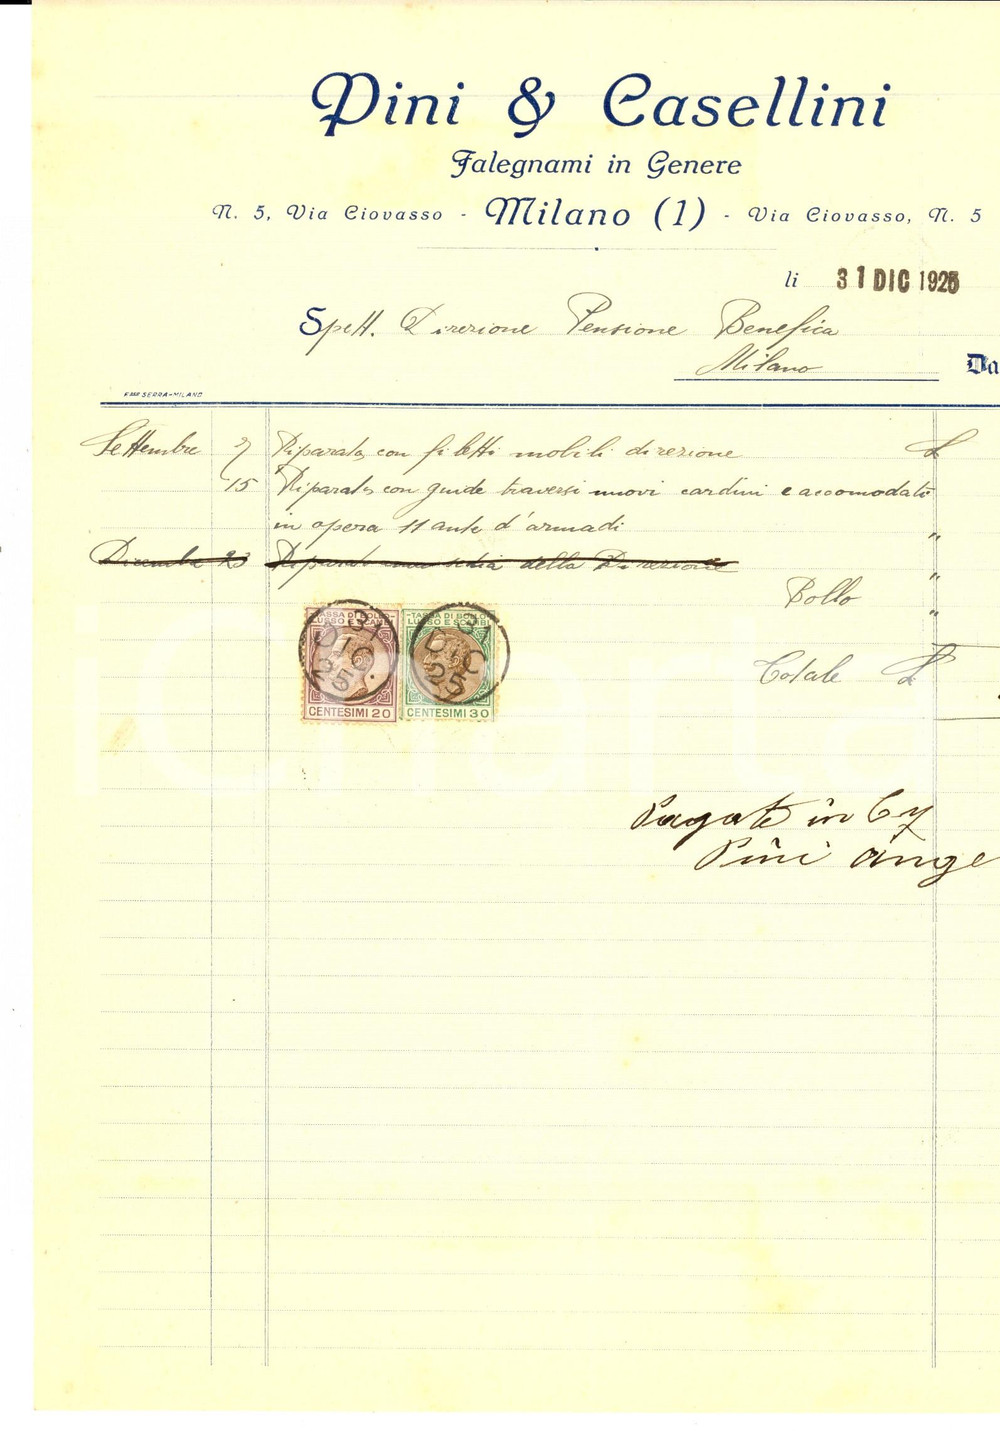 Pini & Casellini
Falegnami in Genere
N. 5, Via Ciovasso - Milano (1) - Via Ciovasso, N. 5
li 31 DIC 1925
Spett. Direzione Pensione Benefica
Milano
Da
F.LLI SERRA-MILANO
Settembre 2 Riparato con filetti mobili direzione £
15 Riparato con guide traversi nuovi cardini e accomodato
in opera 11 ante d'armadi "
Dicembre 23 Riparato una sedia della Direzione "
Bollo "
TASSA DI BOLLO LUSSO E SCAMBI CENTESIMI 20
TASSA DI BOLLO LUSSO E SCAMBI CENTESIMI 30
31 DIC. 25
31 DIC 25
Totale £
Pagato in
Pini Ange